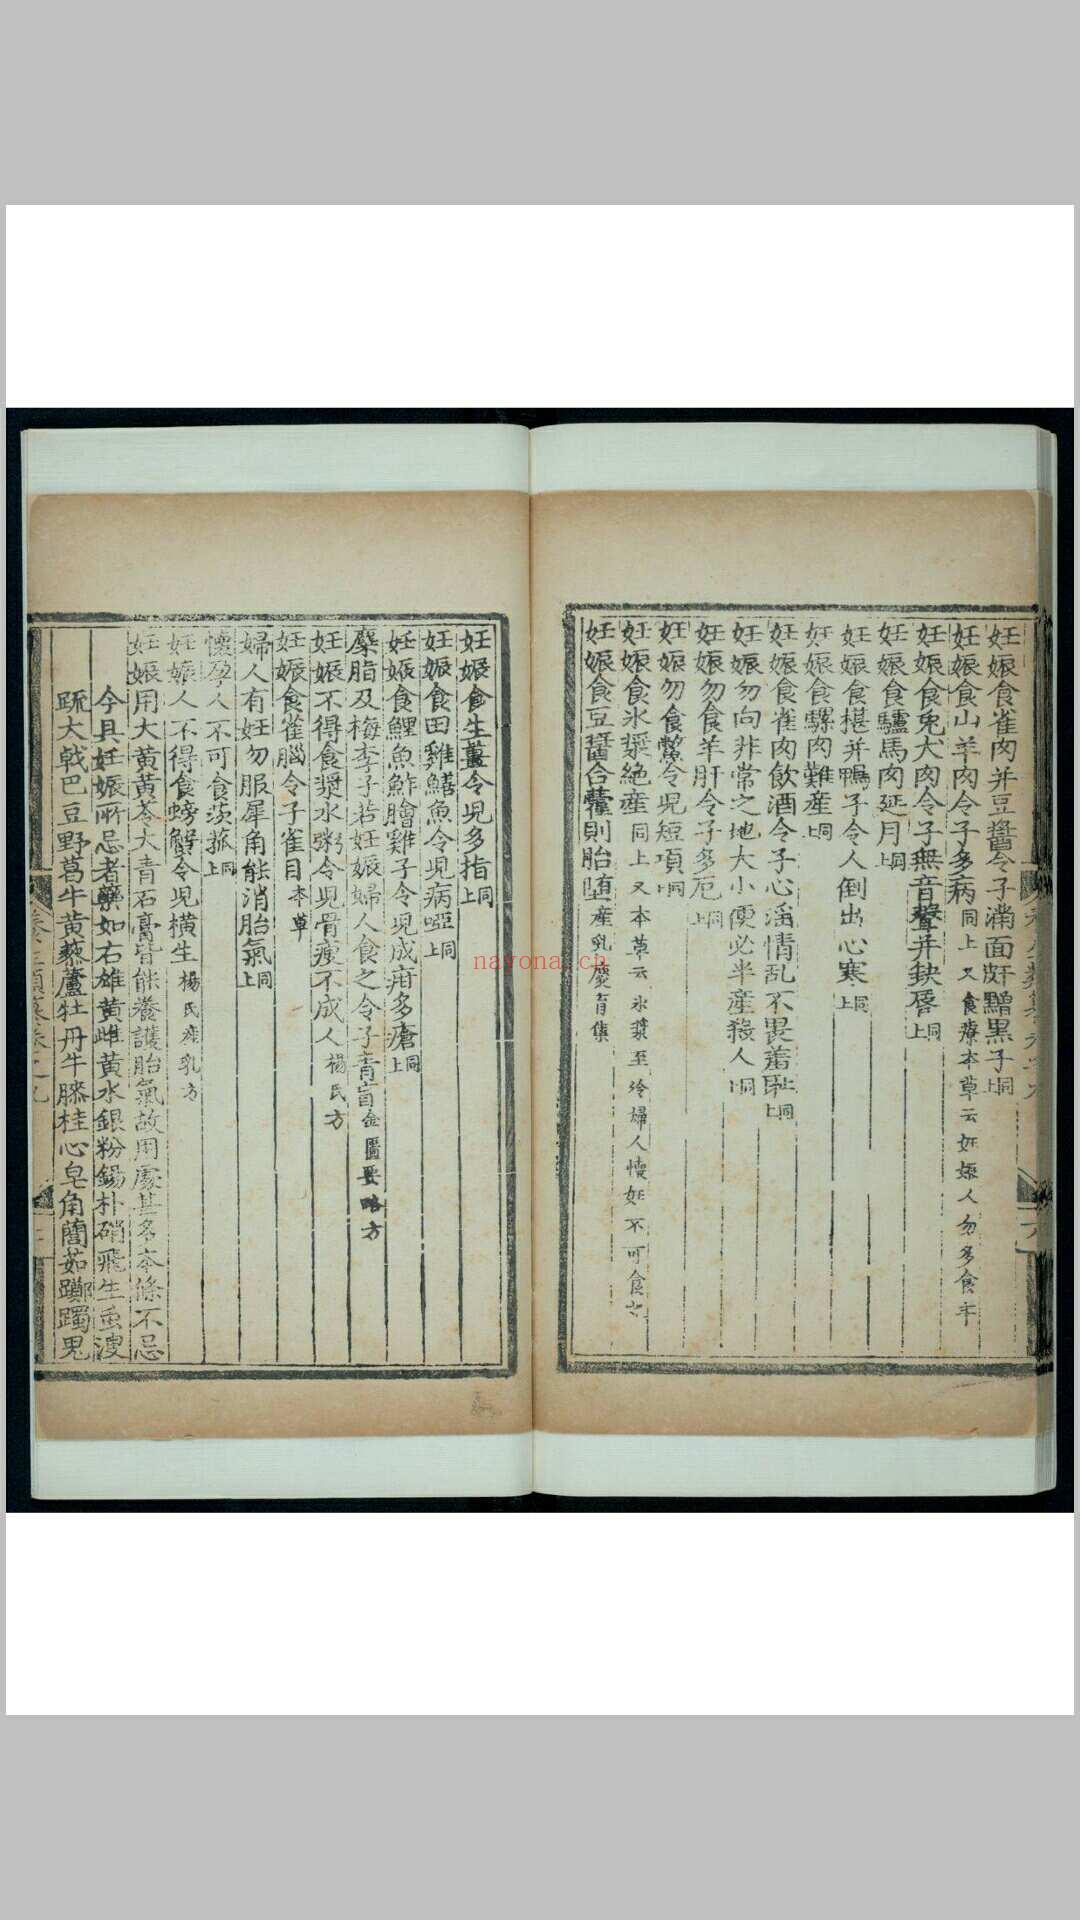 妊娠食雀肉并豆醬令子滿面䵟黯黒子同上
妊娠食山羊肉令子多病同上又食療本草云妊娠人勿多食
妊娠食兎犬肉令子無音聲并缺唇同上
妊娠食驢馬肉延月同上
妊娠食椹并鴨子令人倒出心寒同上
妊娠食騾肉難産同上
妊娠食雀肉飲酒令子心滛情乱不畏羞耻同上
妊娠勿向非常之地大小便必半産殺人同上
妊娠勿食羊肝令子多厄同上
妊娠勿食鱉令児短項同上
妊娠食氷漿絶産同上又本草云氷漿至冷婦人懐妊不可食之
妊娠食豆醬合藿則胎堕産乳慶育集
妊娠食生薑令児多指同上
妊娠食田雞鱔魚令児病啞同上
妊娠食鯉魚鮓膾雞子令児成疳多瘡同上
麋脂及梅李子若妊娠婦人食之令子青盲金匱要略方
妊娠不得食漿水粥令児骨瘦不成人楊氏方
妊娠食雀腦令子雀目本草
婦人有妊勿服犀角能消胎氣同上
懷孕人不可食茨菰同上
妊娠人不得食螃蟹令児横生楊氏産乳方
妊娠用大黄黄芩大青石膏皆能養護胎氣故用處甚多本條不忌
今具妊娠所忌者藥如右雄黄雌黄水銀粉錫朴硝飛生虫溲
疏大戟巴豆野葛牛黄藜蘆牡丹牛膝桂心皂角䕡茹躑躅鬼
nayona.cn